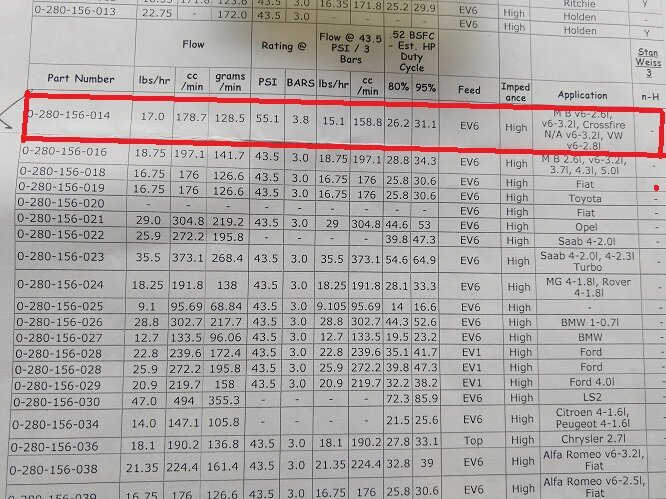 16.35 171.8 25.2 29.9 Ritchie
0-280-156-013 22.75 - 172.0 43.5 3.0 EV6 High Holden Y
High Holden Y
Flow Rating @ Flow @ 43.5 PSI / 3 Bars .52 BSFC - Est. HP Duty Cycle Stan Weiss 3
Part Number lbs/hr cc /min grams /min PSI BARS lbs/hr cc /min 80% 95% Feed Imped ance Application n-H
0-280-156-014 17.0 178.7 128.5 55.1 3.8 15.1 158.8 26.2 31.1 EV6 High M B v6-2.6l, v6-3.2l, Crossfire N/A v6-3.2l, VW v6-2.8l -
0-280-156-016 18.75 197.1 141.7 43.5 3.0 18.75 197.1 28.8 34.3 EV6 High M B 2.6l, v6-3.2l, 3.7l, 4.3l, 5.0l -
0-280-156-018 16.75 176 126.6 43.5 3.0 16.75 176 25.8 30.6 EV6 High Fiat
0-280-156-019 16.75 176 126.6 43.5 3.0 16.75 176 25.8 30.6 EV6 High Toyota -
0-280-156-020 - - - - - - - - - EV6 High Fiat -
0-280-156-021 29.0 304.8 219.2 43.5 3.0 29 304.8 44.6 53 EV6 High Opel -
0-280-156-022 25.9 272.2 195.8 - - - - 39.8 47.3 EV6 High Saab 4-2.0l -
0-280-156-023 35.5 373.1 268.4 43.5 3.0 35.5 373.1 54.6 64.9 EV6 High Saab 4-2.0l, 4-2.3l Turbo -
0-280-156-024 18.25 191.8 138 43.5 3.0 18.25 191.8 28.1 33.3 EV6 High MG 4-1.8l, Rover 4-1.8l -
0-280-156-025 9.1 95.69 68.84 43.5 3.0 9.105 95.69 14 16.6 EV6 High - -
0-280-156-026 28.8 302.7 217.7 43.5 3.0 28.8 302.7 44.3 52.6 EV6 High BMW 1-0.7l -
0-280-156-027 12.7 133.5 96.06 43.5 3.0 12.7 133.5 19.5 23.2 EV6 High BMW -
0-280-156-028 22.8 239.6 172.4 43.5 3.0 22.8 239.6 35.1 41.7 EV1 High Ford -
0-280-156-028 25.9 272.2 195.8 43.5 3.0 25.9 272.2 39.8 47.3 EV1 High Ford -
0-280-156-029 20.9 219.7 158 43.5 3.0 20.9 219.7 32.2 38.2 EV1 High Ford 4.0l -
0-280-156-030 47.0 494 355.3 - - - - 72.3 85.9 EV6 High LS2 -
0-280-156-034 14.0 147.1 105.8 - - - - 21.5 25.6 EV6 High Citroen 4-1.6l, Peugeot 4-1.6l -
0-280-156-036 18.1 190.2 136.8 43.5 3.0 18.1 190.2 27.8 33.1 Top High Chrysler 2.7l -
0-280-156-038 21.35 224.4 161.4 43.5 3.0 21.35 224.4 32.8 39 EV6 High Alfa Romeo v6-3.2l, Fiat -
0-280-156-039 16.75 176 126.6 43.5 3.0 16.75 176 25.8 30.6 EV6 High Alfa Romeo v6-2.5l, Fiat -